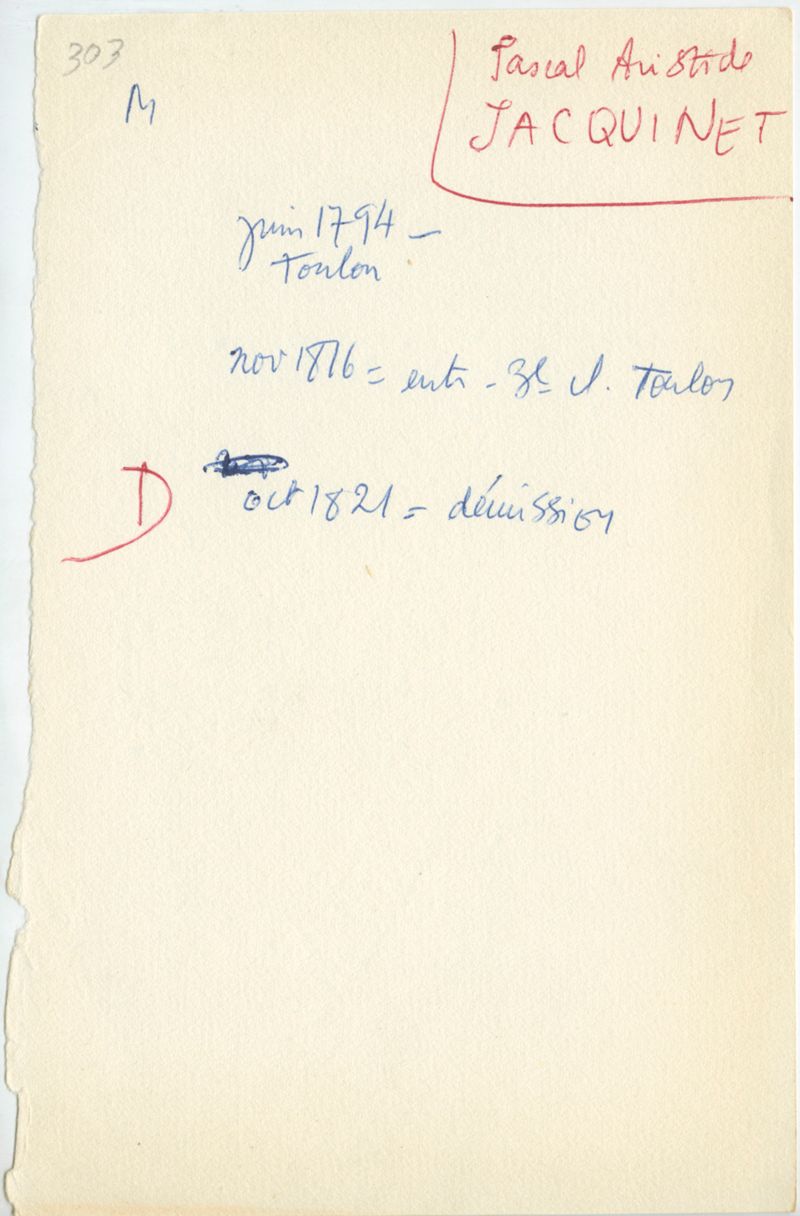 303
M
Pascal Aristide
JACQUINET
juin 1794 -
Toulon
nov 1816 = entr - 3e cl. Toulon
D
oct 1821 = démission